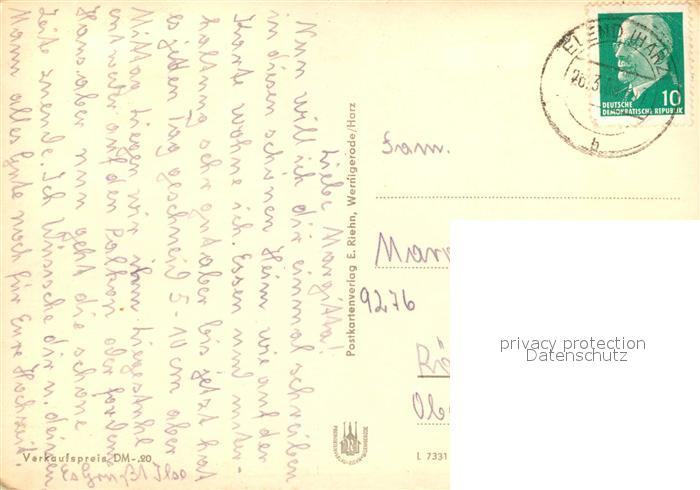 Liebe Margitta!
Nun will ich dir einmal schreiben
in diesen schönen Heim wie auf der
Karte wohne ich. Essen und unter-
haltung sehr gut aber bis jetzt hat
es jeden Tag geschneid 5-10 cm aber
Mittag liegen wir ihm Liegestuhl
entweder auf den Balkon oder
Haus aber nun geht die schöne
Zeite zuende. Ich Wünsche dir u. deinen
Mann alles Gute noch für Eure Hochzeit.
Es Grüßt Ilse
Verkaufspreis DM -.20
Postkartenverlag E. Riehn, Wernigerode/Harz
L 7331
ELEND (HARZ)
b
10
DEUTSCHE
DEMOKRATISCHE REPUBLIK
Fam.
Marr
9276
Rö
Obe
privacy protection
Datenschutz